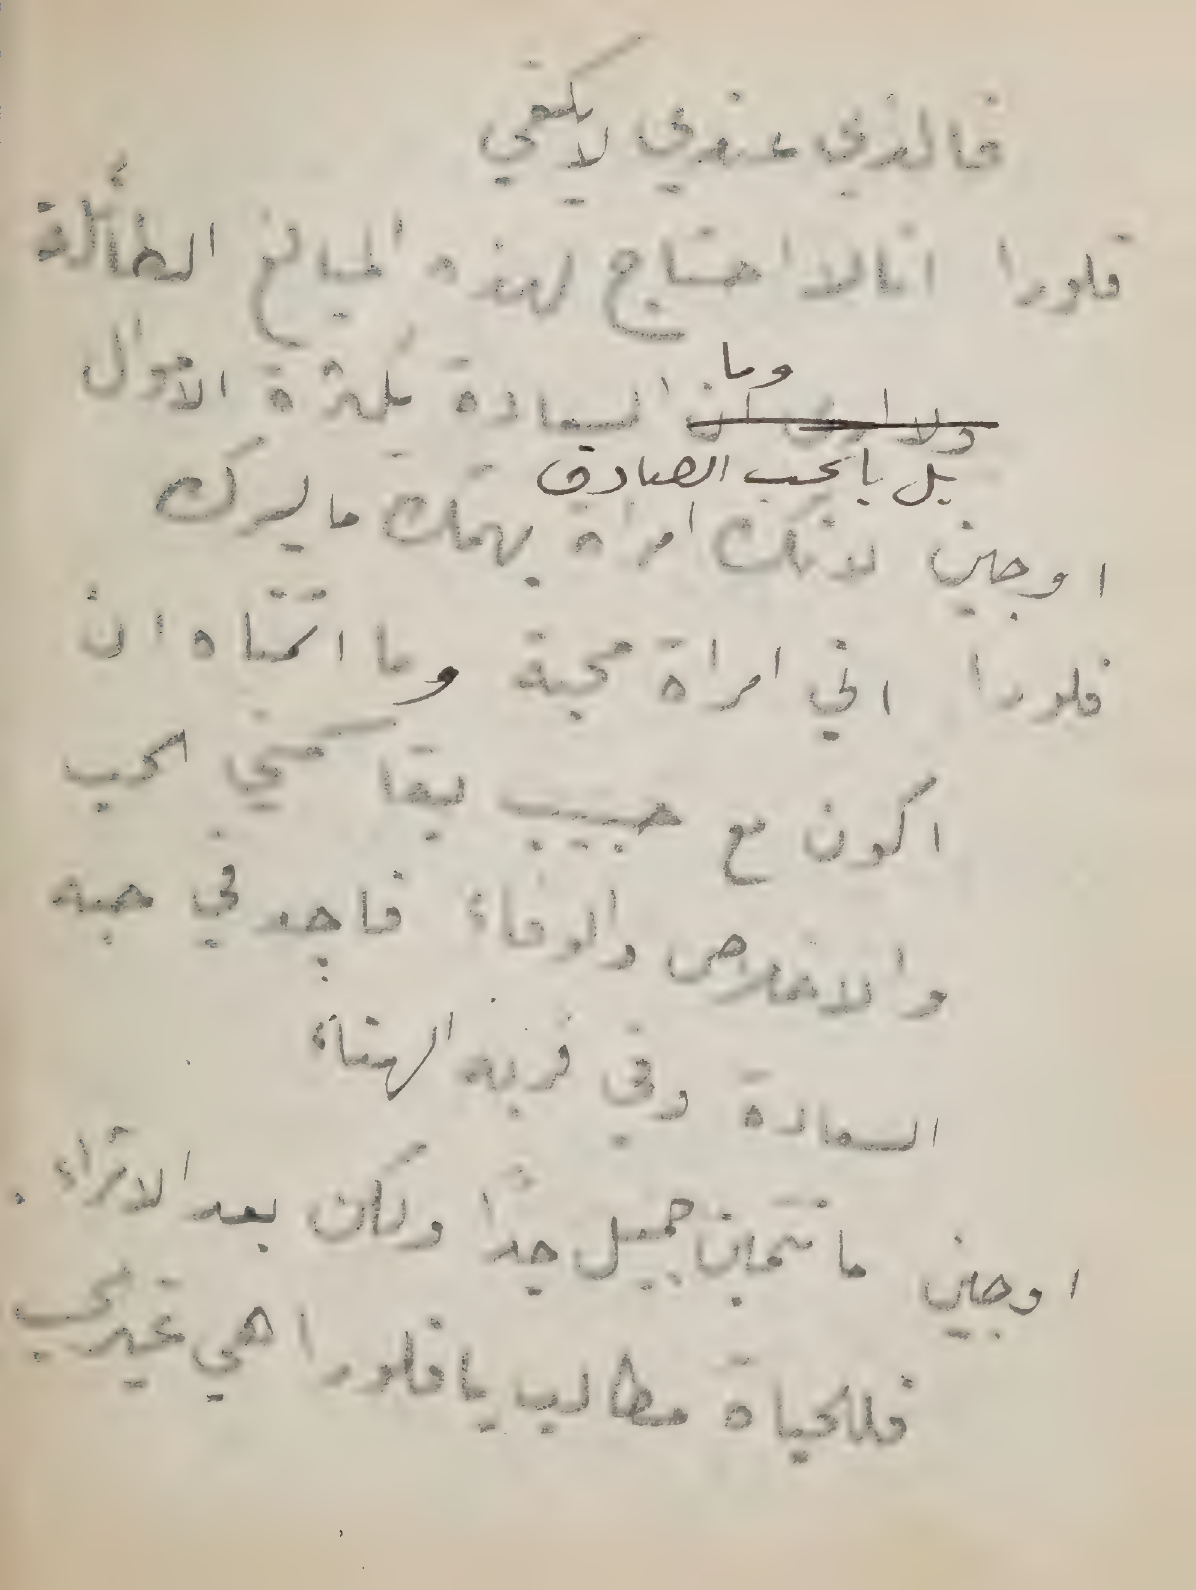 فالذي عندي لا يكفي
فلورا انا لا احتاج لهذه المبالغ الطائلة
وما
ولا ارى ان السعادة بكثرة الاموال
بل بالحب الصادق
اوجين لانك امراة يهمك ما يسرك
فلورا اني امراة محبة وما اتمناه ان
اكون مع حبيب يقاسمني الحب
والاخلاص والوفاء فاجد في حبه
السعادة وفي قربه الهناء
اوجين ما تتمنين جميل جدًا ولكن بعد الاثراء.
فللحياة مطالب يا فلورا هي غير الحب